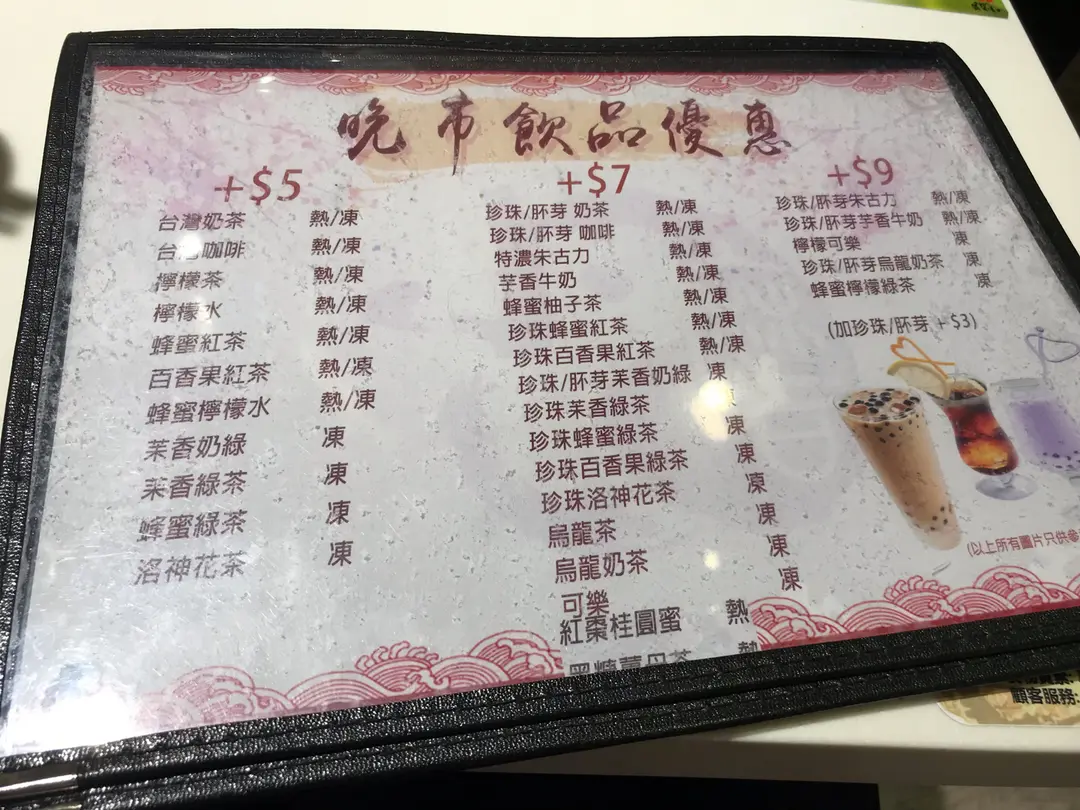 晚市飲品優惠
+$5
台灣奶茶 熱/凍
台灣咖啡 熱/凍
檸檬茶 熱/凍
檸檬水 熱/凍
蜂蜜紅茶 熱/凍
百香果紅茶 熱/凍
蜂蜜檸檬水 熱/凍
茉香奶綠 凍
茉香綠茶 凍
蜂蜜綠茶 凍
洛神花茶 凍
+$7
珍珠/胚芽 奶茶 熱/凍
珍珠/胚芽 咖啡 熱/凍
特濃朱古力 熱/凍
芋香牛奶 熱/凍
蜂蜜柚子茶 熱/凍
珍珠蜂蜜紅茶 熱/凍
珍珠百香果紅茶 熱/凍
珍珠/胚芽茉香奶綠 凍
珍珠茉香綠茶 凍
珍珠蜂蜜綠茶 凍
珍珠百香果綠茶 凍
珍珠洛神花茶 凍
烏龍茶 凍
烏龍奶茶 凍
可樂 凍
紅棗桂圓蜜 熱
黑糖薑母茶 熱
+$9
珍珠/胚芽朱古力 熱/凍
珍珠/胚芽芋香牛奶 熱/凍
檸檬可樂 凍
珍珠/胚芽烏龍奶茶 凍
蜂蜜檸檬綠茶 凍
(加珍珠/胚芽 + $3)
(以上所有圖片只供參
顧客服務: